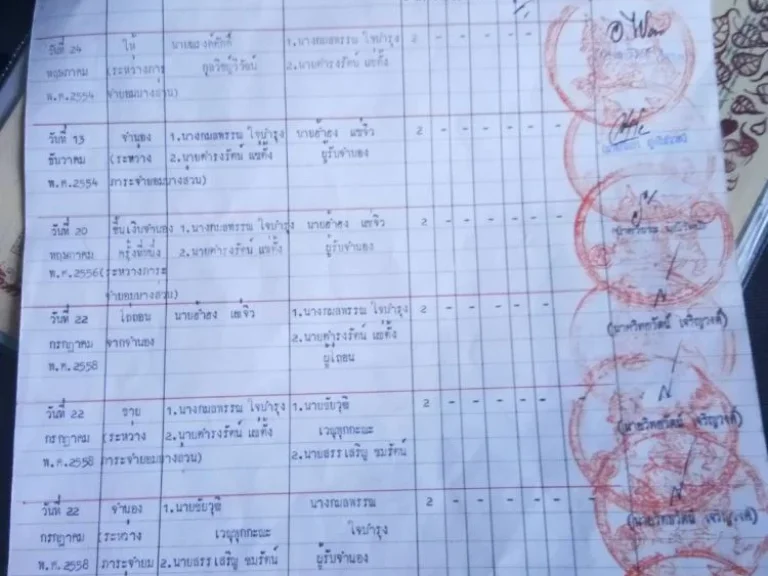 วันที่ 24 ให้ 1.นางกมลพรรณ ใจบำรุง 2 - - - - -
พฤษภาคม (ระหว่างภาระ 2.นายดำรงรัตน์ แซ่ตั้ง
พ.ศ.2554 จำยอมบางส่วน)
วันที่ 13 จำนอง 1.นางกมลพรรณ ใจบำรุง นายฮ้าฮง แซ่จิว 2 - - - - -
ธันวาคม (ระหว่าง 2.นายดำรงรัตน์ แซ่ตั้ง ผู้รับจำนอง
พ.ศ.2554 ภาระจำยอมบางส่วน)
วันที่ 20 ขึ้นเงินจำนอง 1.นางกมลพรรณ ใจบำรุง นายฮ้าฮง แซ่จิว 2 - - - - -
พฤษภาคม ครั้งที่หนึ่ง 2.นายดำรงรัตน์ แซ่ตั้ง ผู้รับจำนอง
พ.ศ.2556 (ระหว่างภาระ
จำยอมบางส่วน)
วันที่ 22 ไถ่ถอน นายฮ้าฮง แซ่จิว 1.นางกมลพรรณ ใจบำรุง 2 - - - - -
กรกฎาคม จากจำนอง 2.นายดำรงรัตน์ แซ่ตั้ง (นายวิทยวัฒน์ เจริญวงศ์)
พ.ศ.2558 ผู้ไถ่ถอน
วันที่ 22 ขาย 1.นางกมลพรรณ ใจบำรุง 1.นายชัยวุฒิ 2 - - - - -
กรกฎาคม (ระหว่าง 2.นายดำรงรัตน์ แซ่ตั้ง (นายวิทยวัฒน์ เจริญวงศ์)
พ.ศ.2558 ภาระจำยอมบางส่วน) 2.นายสรรเสริญ ชมรัตน์
วันที่ 22 จำนอง 1.นายชัยวุฒิ นางกมลพรรณ 2 - - - - - -
กรกฎาคม (ระหว่าง ใจบำรุง (นายวิทยวัฒน์ เจริญวงศ์)
พ.ศ.2558 ภาระจำยอม 2.นายสรรเสริญ ชมรัตน์ ผู้รับจำนอง